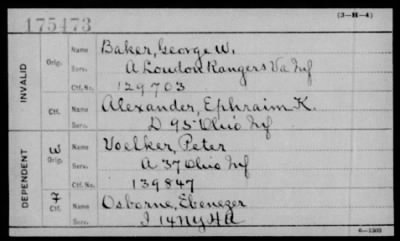 175473
(3-H-4)
INVALID
Orig.
Name Baker, George W.
Serv. A Loudon Rangers Va Inf
Ctf. No. 129703
Ctf.
Name Alexander, Ephraim K.
Serv. D 95 Ohio Inf
DEPENDENT
W
Orig.
Name Voelker, Peter
Serv. A 37 Ohio Inf
Ctf. No. 139847
Ctf.
Name Osborne, Ebenezer
Serv. I 14 NY HA
6-1303